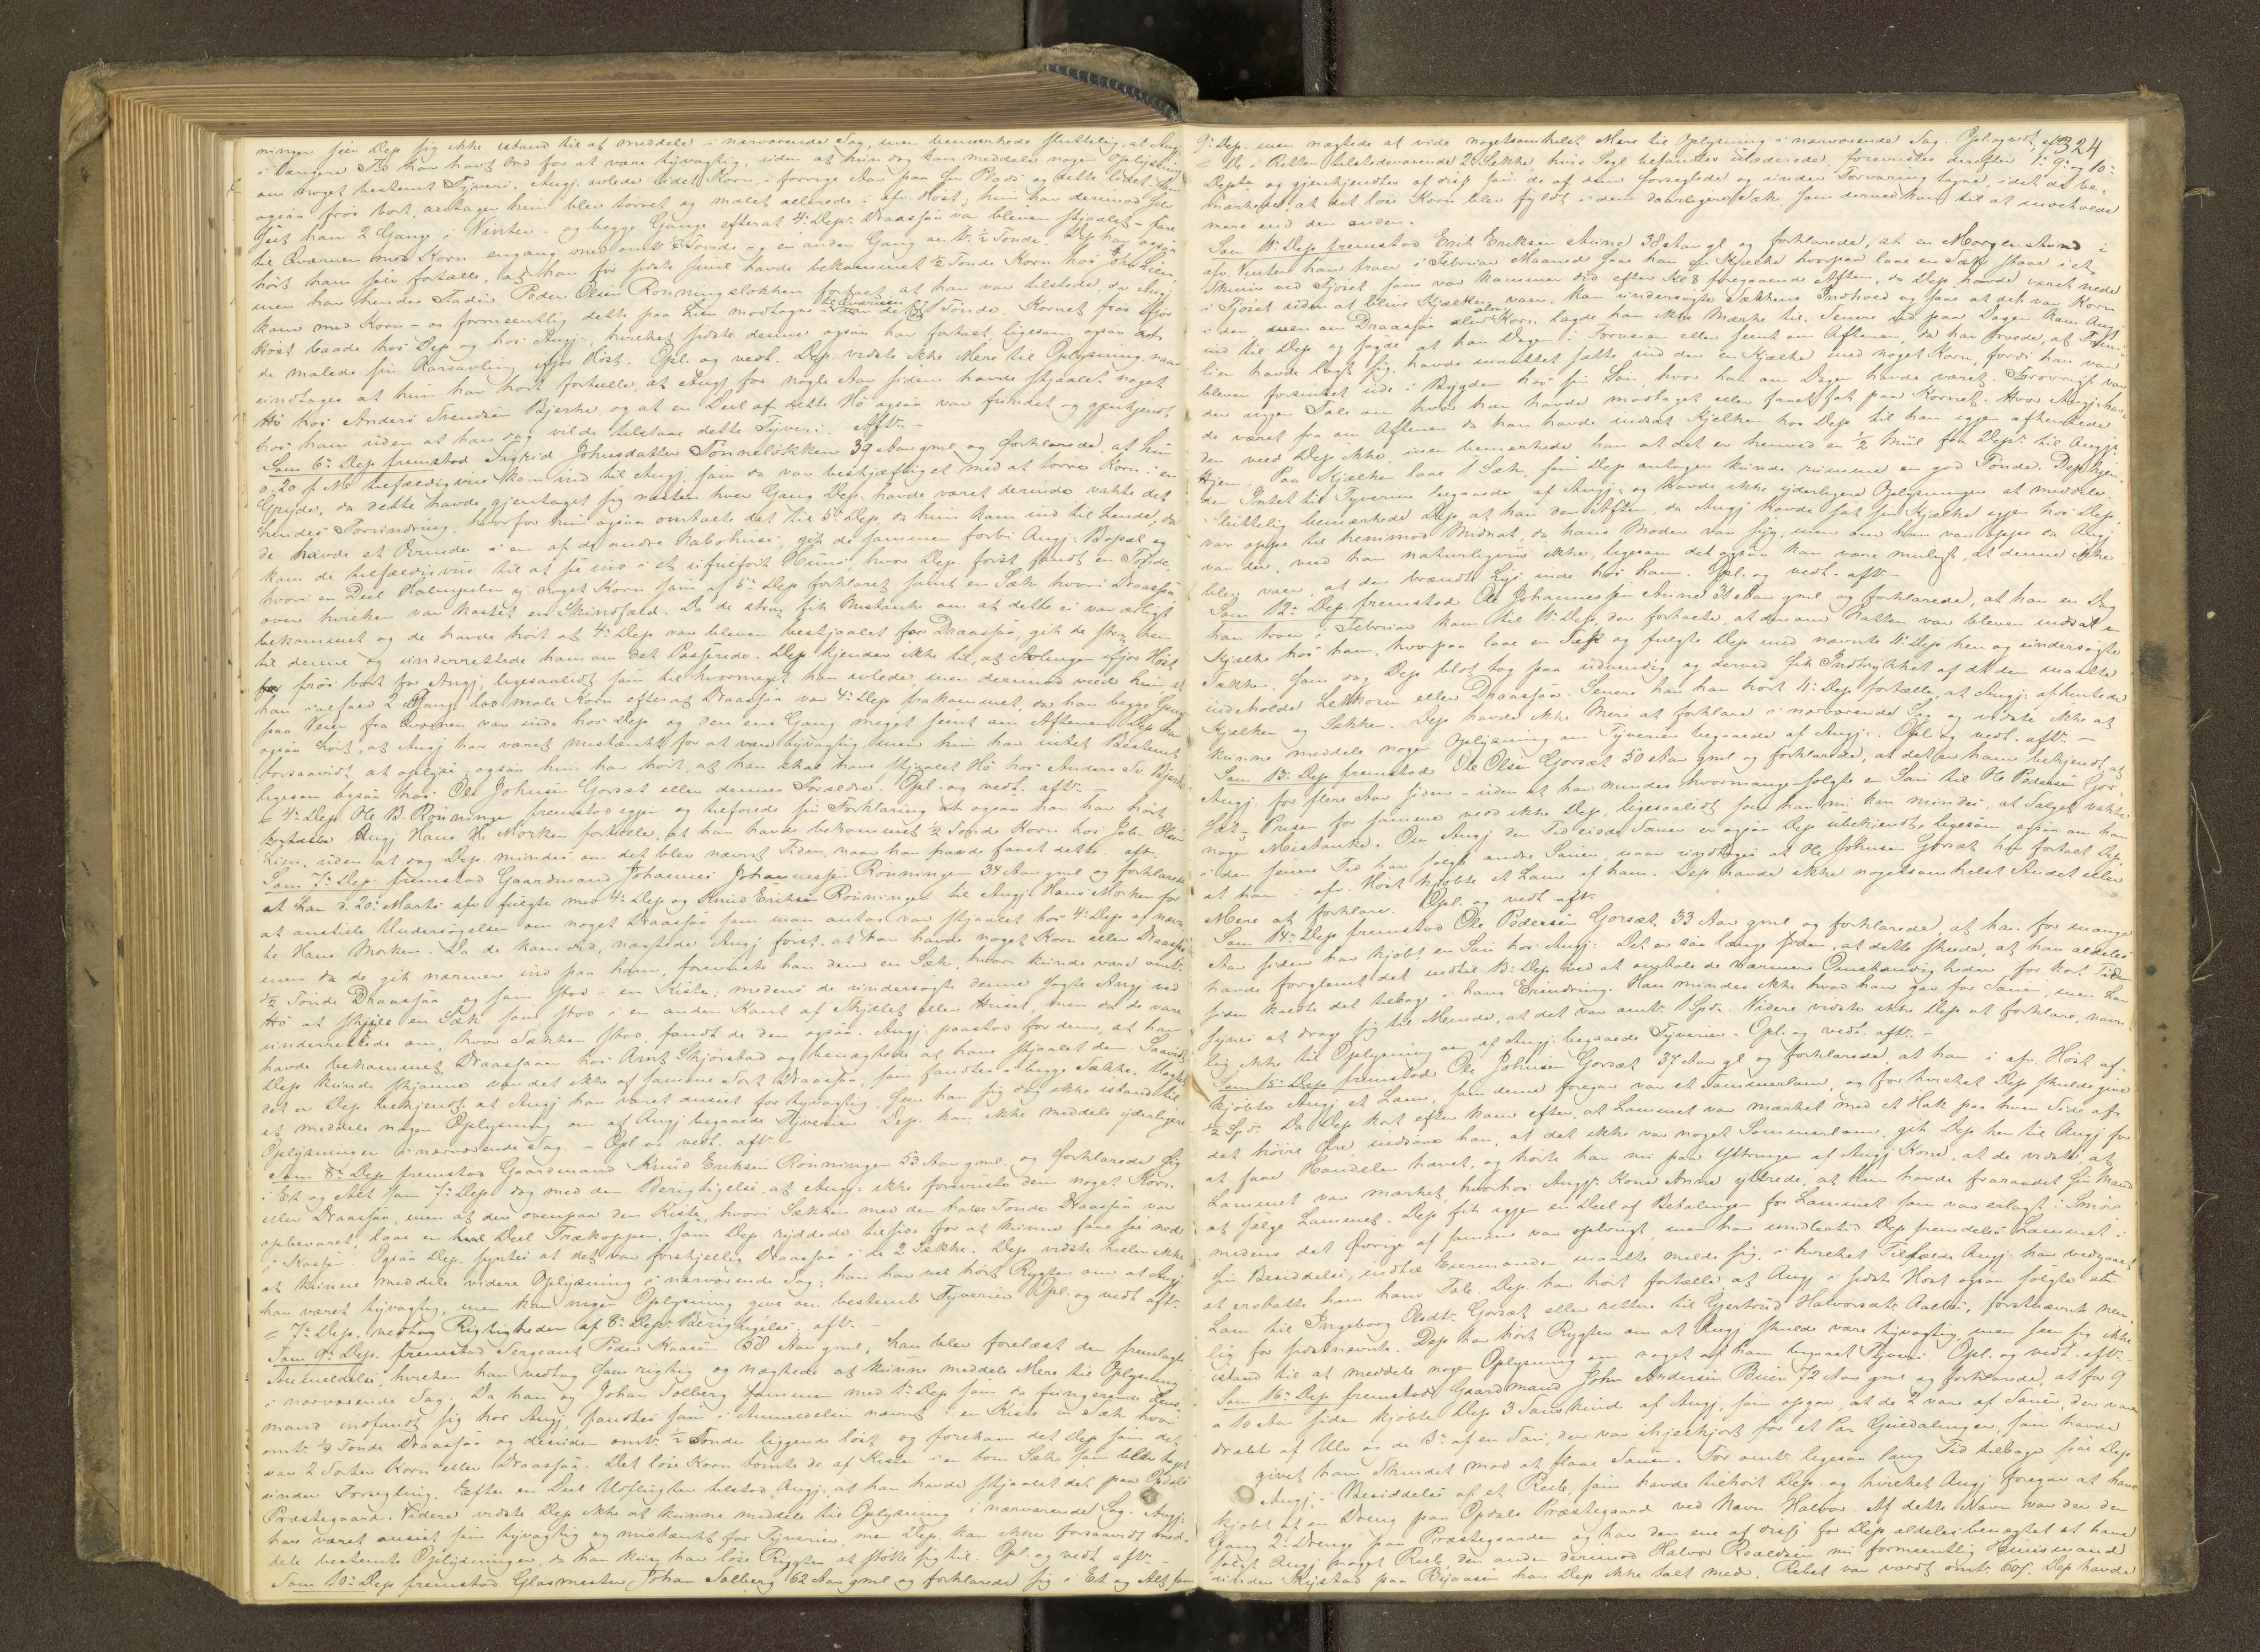 ninger seer Dep sig ikke istand til at meddele i nærværende Sag, men bemærkede sluttelig, at Ang
i længere Tid har havt Ord for at være tyvagtig, uden at hun dog kan meddele nogen Oplysning
om noget bestemt Tyveri. Angj. avlede lidet Korn i forrige Aar paa sin Plads og dette lidet, som
ogsaa frøs bort, antager hun blev tørret og malet allerede i afv. Høst; hun har derimod selv
seet ham 2 Gange i Vinter - og begge Gange efterat 4. Dep. Draasaa var bleven stjaalet - fare
til Qværnen med Korn engang med omtr. ¼ Tønde og en anden Gang omtr. ½ Tønde. Dep har ogsaa
hørt ham selv fortælle, at han før sidste Juul havde bekommet ½ Tønde Korn hos John Lien,
men har hendes Fader Peder Olsen Rønningsløkken fortalt, at han var tilstede, da Angj
kom med Korn - og formeentlig dette paa Lien modtagne - til Qværnen Tønde. Kornet frøs ifjor
Høst baade hos Dep og hos Angj., hvilket sidste denne ogsaa har fortalt, ligesom ogsaa at
de malede sin Aarsavling ifjor Høst. Opl. og vedt. Dep. vidste ikke Mere til Oplysning, naar
undtages at hun har hørt fortælle, at Angj for nogle Aar siden havde stjaalet noget
Hø hos Anders Svendsen Bjerke, og at en Deel af dette Hø ogsaa var fundet og gjenkjendt
hos ham uden at han dog vilde tilstaae dette Tyveri. Aftr. -
Som 6te Dep. fremstod Sigrid Johnsdatter Tønneløkken 39 Aar gml og forklarede, at hun
d. 20 f. M. tilfældigviis kom ind til Angj. som da var beskjæftiget med at tørre Korn i en
Gryde, da dette havde gjentaget sig næsten hver Gang Dep. havde været derinde vakte det
hendes Forundring, hvorfor hun ogsaa omtalte det til 5te Dep, da hun kom ind til hende, da
de havde et Ærende i en af de andre Nabohuse, gik de sammen forbi Angj. Bopæl og
kom de tilfældigviis til at see ind i et ufuldført Huus, hvor Dep. først fandt en Tønde,
hvori en Deel Halmpuber og noget Korn som af 5te Dep forklaret samt en Sæk hvori Draasaa
over hvilken var kastet en Skindfæld. Da de strax fik Mistanke om at dette ei var ærligt
bekommet og de havde hørt at 4de Dep var bleven bestjaalet for Draasaa, gik de strax hen
til denne og underrettede ham om det Passerede. Dep. kjender ikke til, at Avlingen ifjor Høst
frøs bort for Angj. ligesaalidt som til hvormeget han avlede, men derimod veed hun at
han ialfald 2 Gange lod male Korn efterat Draasaa var 4de Dep frakommet, da han begge Gange
paa Veien fra Qværnen var inde hos Dep og den ene Gang meget seent om Aftenen. Dep har
ogsaa hørt, at Angj har været mistænkt for at være tyvagtig, men hun har intet Bestemt
forsaavidt at oplyse; ogsaa hun har hørt, at han skal have stjaalet Hø hos Anders Sv. Bjerke
ligesom ogsaa hos Ole Johnsen Gorsæt eller dennes Forældre. Opl. og vedt. aftr.
= 4de Dep. Ole B. Rønningen fremstod igjen og tilføiede sin Forklaring at ogsaa han har hørt
Angj Hans H. Morken fortælle, at han havde bekommet ½ Tønde Korn hos John Olsen
Lien, uden at dog Dep. mindes om det blev nævnt Tiden, naar han havde faaet dette. aftr.
Som 7de Dep. fremstod Gaardmand Johannes Johannessen Rønningen 34 Aar gml og forklarede
at han d. 20de Marts afv fulgte med 4de Dep og Knud Eriksen Rønningen til Angj. Hans Morken for
at anstille Undersøgelser om noget Draasaa som man antog var stjaalet hos 4de Dep af nævn-
te Hans Morken. Da de kom did, nægtede Angj først, at han havde noget Korn eller Draasaa
men da de gik nærmere ind paa ham, foreviste han dem en Sæk, hvori kunde være omtr.
½ Tønde Draasaa og som stod i en Kiste; medens de undersøgte denne søgte Angj ved
Hø at skjule en Sæk som stod i en anden Kant af Skjulet eller Huset, men da de vare
underrettede om, hvor Sækken stod, fandt de den ogsaa. Angj. paastod for dem, at han
havde bekommet Draasaaen hos Arnt Skjørstad og benægtede at have stjaalet den. Saavidt
Dep kunde skjønne var det ikke af samme Sort Draasaa, som fandtes i begge Sække. Uagtet
det er Dep. bekjendt at Angj har været anseet for tyvagtig, seer han sig dog ikke istand til
at meddele nogen Oplysning om af Angj begaaede Tyverier. Dep. kan ikke meddele yderligere
Oplysninger i nærværende Sag. - Opl og vedt. aftr. -
Som 8de Dep fremstod Gaardmand Knud Eriksen Rønningen 53 Aar gml. og forklarede sig
i Et og Alt som 7de Dep. dog med den Berigtigelse, at Angj. ikke foreviste dem noget Korn
eller Draasaa, men at der ovenpaa den Kiste, hvori Sækken med den halve Tønde Draasaa var
opbevaret, laae en Deel Trækopper, som Dep. ryddede tilside for at kunne faae see ned
i Kassen. Ogsaa Dep. syntes at det var forskjellig Draasaa i de 2 Sække. Dep. vidste heller ikke
at kunne meddele videre Oplysning i nærværende Sag; han har vel hørt Rygter om at Angj
har været tyvagtig, men kan ingen Oplysning give om bestemte Tyverier. Opl. og vedt aftr.
= 7de Dep. vedtog Rigtigheden af 8de Dep Berigtigelse. aftr. -
Som 9de Dep. fremstod Sergeant Peder Kaasen 58 Aar gml; han blev forelæst den fremlagte
Anmeldelse, hvilken han vedtog som rigtig og nægtede at kunne meddele Mere til Oplysning
i nærværende Sag. Da han og Johan Solberg sammen med 1ste Dep som da fungerende Lens-
mand indfandt sig hos Angj. fandtes som i Anmeldelsen nævnt i en Kiste en Sæk hvori
omtr. ¼ Tønde Draasaa og desuden omtr. ½ Tønde liggende løst og forekom det Dep som det
var 2 Sorter Korn eller Draasaa. Det løse Korn tømte de af Kisten i en tom Sæk som blev taget
under Forsegling. Efter en Deel Udflugter tilstod Angj. at han havde stjaalet det paa Opdals
Præstegaard. Videre vidste Dep ikke at kunne meddele til Oplysning i nærværende Sag. Angj.
har været anseet som tyvagtig og mistænkt for Tyverier, men Dep. kan ikke forsaavidt med-
dele bestemte Oplysninger, da han kun har løse Rygter at støtte sig til. Opl. og vedt aftr. -
Som 10de Dep fremstod Glasmester Johan Solberg 62 Aar gml og forklarede sig i Et og Alt som
324
9de Dep, men nægtede at vide nogetsomhelst Mere til Oplysning i nærværende Sag. Opl. og vedt aftr.
= De i Retten tilstedeværende 2 Sække, hvis Segl befandtes ubeskadigede, forevistes derefter 1ste 9de og 10de
Depter og gjenkjendtes af disse som de af dem forseglede og under Forvaring tagne, idet de be-
mærkede, at det løse Korn blev fyldt i den daarligere Sæk, som derved kom til at indeholde
mere end den anden.
Som 11te Dep fremstod Erik Eriksen Aune 38 Aar gl og forklarede, at en Morgenstund i
afv. Vinter han troer i Februar Maaned saae han en Kjælke hvorpaa laae en Sæk staae i et
Skuur ved Fjøset som var kommen did efter Kl 8 foregaaende Aften, da Dep. havde været nede
i Fjøset uden at blive Kjælken vaer. Han undersøgte Sækkens Indhold og saae at det var Korn
i den, men om Draasaa eller andet Korn lagde han ikke Mærke til. Senere ud paa Dagen kom Angj
ind til Dep og sagde at han Dagen i Forveien eller seent om Aftenen, da han troede, at Fami-
lien havde lagt sig, havde maattet sætte ind der en Kjælke med noget Korn, fordi han var
bleven forsinket ude i Bygden hos sin Søn, hvor han om Dagen havde været. Forøvrigt var
der ingen Tale om hvor han havde modtaget eller faaet fat paa Kornet. Hvor Angj. hav-
de været fra om Aftenen da han havde indsat Kjælken hos Dep til han igjen afhentede
den veed Dep ikke, men bemærkede han at det er henved en ½ Miil fra Dep. til Angj.
Hjem. Paa Kjælken laae 1 Sæk, som Dep antager kunde rumme en god Tønde. Dep kjen-
der Intet til Tyverier begaaede af Angj. og havde ikke yderligere Oplysninger at meddele.
Sluttelig bemærkede Dep, at han den Aften, da Angj havde sat sin Kjælke igjen hos Dep,
var oppe til henimod Midnat, da hans Moder var syg, men om han var oppe da Angj
var der, veed han naturligviis ikke, ligesom det ogsaa kan være muligt, at denne ikke
blev vaer, at der brændte Lys inde hos ham. Opl. og vedt. aftr.
Som 12te Dep. fremstod Ole Johannessen Aune 31 Aar gml og forklarede, at han en Dag
han troer i Februar kom til 11te Dep, der fortalte, at der om Natten var bleven indsat en
Kjælke hos ham, hvorpaa laae en Sæk og fulgte Dep med nævnte 11te Dep hen og undersøgte
Sækken, som dog Dep blot tog paa udvendig og derved fik Indtrykket af at den maatte
indeholde Letkorn eller Draasaa. Senere har han hørt 11te Dep fortælle, at Angj. afhentede
Kjælken og Sækken. Dep havde ikke Mere at forklare i nærværende Sag og vidste ikke at
kunne meddele nogen Oplysning om Tyverier begaaede af Angj.. Opl og vedt. aftr. -
Som 13de Dep fremstod Ole Olsen Gorsæt 50 Aar gml og forklarede, at det er ham bekjendt, at
Angj. for flere Aar siden - uden at han mindes hvormange - solgte en Sau til Ole Pedersen Gor-
sæt. Prisen for samme veed ikke Dep, ligesaalidt som han nu kan mindes, at Salget vakte
nogen Mistanke. Om Angj den Tid eiede Sauer er ogsaa Dep ubekjendt, ligesom ogsaa om han
i den senere Tid har solgt andre Sauer, naar undtages at Ole Johnsen Gorsæt har fortalt Dep.
at han i afv. Høst kjøbte et Lam af ham. Dep havde ikke nogetsomhelst Andet eller
Mere at forklare. Opl. og vedt. aftr.
Som 14de Dep fremstod Ole Pedersen Gorsæt, 33 Aar gml og forklarede, at han for mange
Aar siden har kjøbt en Sau hos Angj: Det er saa længe siden, at dette skeede, at han aldeles
havde forglemt det indtil 13de Dep ved at omtale de nærmere Omstændigheder for kort Tid
siden kaldte det tilbage i hans Erindring. Han mindes ikke hvad han gav for Sauen, men han
synes at drage sig til Minde, at det var omtr. 1 Spd. Videre vidste ikke Dep at forklare, navn-
lig ikke til Oplysning om af Angj. begaaede Tyverier. Opl. og vedt. aftr. -
Som 15de Dep fremstod Ole Johnsen Gorsæt 37 Aar gl og forklarede, at han i afv. Høst af-
kjøbte Angj et Lam, som denne foregav var et Sommerlam, og for hvilket Dep skulde give
½ Spd. Da Dep kort efter kom efter, at Lammet var mærket med et Hak paa hver Side af
det høire Øre, indsaae han, at det ikke var noget Sommerlam, gik Dep hen til Angj for
at faae Handelen hævet, og hørte han nu paa Yttringer af Angj. Kone, at de vidste, at
Lammet var mærket, hvorhos Angj. Kone Anne yttrede, at hun havde fraraadet sin Mand
at sælge Lammet. Dep fik igjen en Deel af Betalingen for Lammet som var erlagt i Smør,
medens det Øvrige af samme var opbrugt, men har imidlertid Dep fremdeles Lammet i
sin Besiddelse, indtil Eiermanden maatte melde sig, i hvilket Tilfælde Angj. har vedgaaet
at erstatte ham hans Tab. Dep. har hørt fortælle, at Angj i sidste Høst ogsaa solgte et
Lam til Ingeborg Olsdtr. Gorsæt eller rettere til Gjertrud Halvorsdtr. Aalbu, førstnævnte nem-
lig for sidstnævnte. Dep har hørt Rygter om at Angj skulde være tyvagtig, men seer sig ikke
istand til at meddele nogen Oplysning om noget af ham begaaet Tyveri. Opl. og vedt. aftr. -
Som 16de Dep fremstod Gaardmand John Andersen Buen 72 Aar gml og forklarede, at for 9
a 10 Aar siden kjøbte Dep 3 Saueskind af Angj. som opgav, at de 2 vare af Sauer, der vare
dræbt af Ulv og de 3de af en Sau, der var ihjelkjørt for et Par Guldalinger, som havde
givet ham Skindet mod at flaae Sauen. For omtr ligesaa lang Tid tilbage saae Dep
i Angj.s Besiddelse af et Reeb, som havde tilhørt Dep. og hvilket Angj. foregav at have
kjøbt af en Dreng paa Opdals Præstegaard ved Navn Halvor. Af dette Navn var der den
Gang 2de Drenge paa Præstegaarden og har den ene af disse for Dep aldeles benægtet at have
solgt Angj noget Reeb, den anden derimod Halvor Roaldsen nu formeentlig Huusmand
under Rystad paa Byaasen har Dep ikke talt med. Rebet var værdt omtr. 60 s. Dep havde